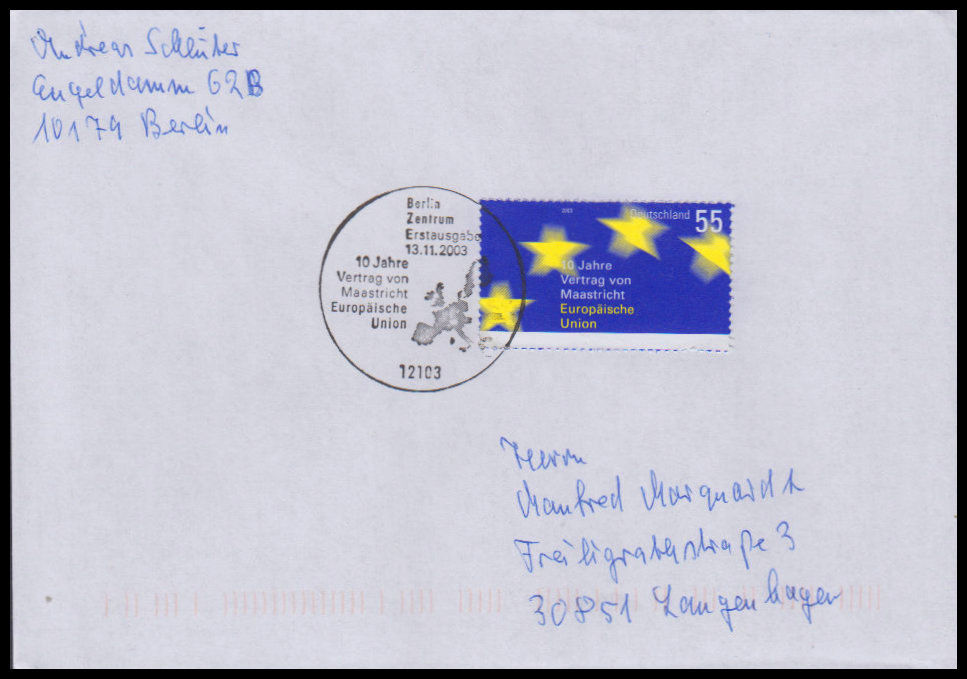 Andreas Schlüter
Engeldamm 62B
10179 Berlin
Berlin
Zentrum
Erstausgabe
13.11.2003
10 Jahre
Vertrag von
Maastricht
Europäische
Union
12103
2003
Deutschland 55
10 Jahre
Vertrag von
Maastricht
Europäische
Union
Herrn
Manfred Marquardt
Freiligrathstraße 3
30851 Langenhagen